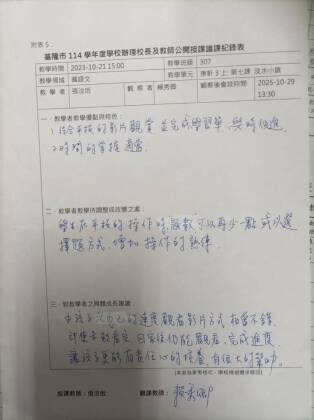 附表 5：
基隆市 114 學年度學校辦理校長及教師公開授課議課紀錄表
教學時間 2023-10-21 15:00 教學班級 307
教學領域 閩語文 教學單元 康軒 3 上 第七課 淡水小鎮
教學者 張汝岱 觀察者 賴秀卿 觀察後會談時間 2025-10-29 13:30
一、教學者教學優點與特色：
1.結合平板的影片觀賞並完成學習單，與時俱進。
2.時間的掌握適當。
二、教學者教學待調整或改變之處：
學生在平板的操作時，題數可以再少一點或以選
擇題方式，增加操作的熟悉
三、對教學者之具體成長建議：
由孩子自己的速度觀看影片方式相當不錯，
回家後仍能觀看，完成進度
讓孩子更能有責任心的培養，有很大的幫助。
(本表為參考格式，學校得視需求修改)
授課教師：張汝岱 觀課教師：賴秀卿